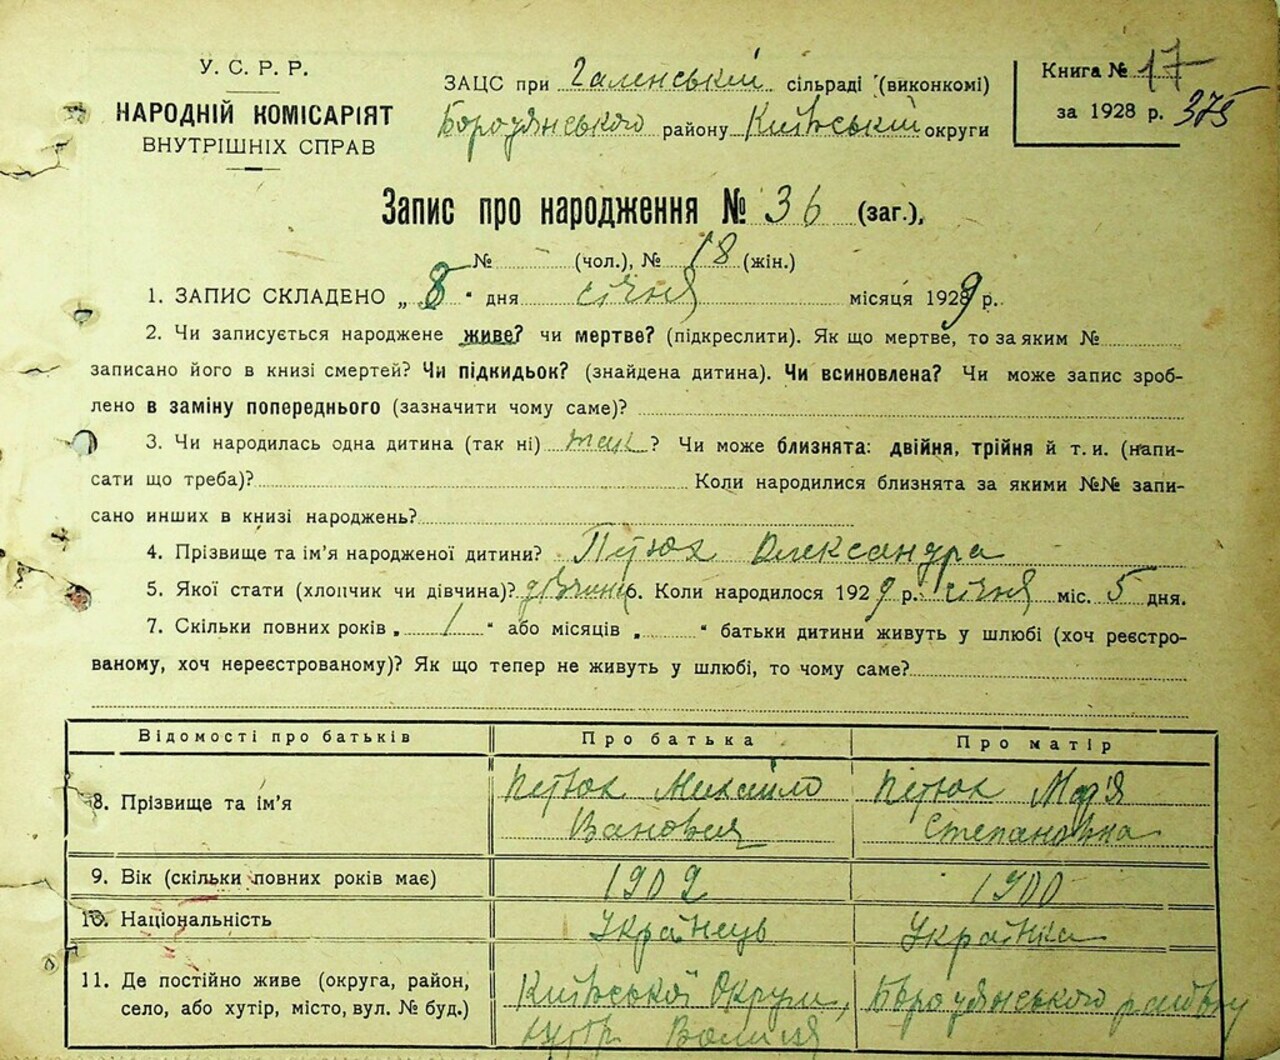 У. С. Р. Р.
НАРОДНІЙ КОМІСАРІЯТ
ВНУТРІШНІХ СПРАВ
ЗАЦС при Галенській сільраді (виконкомі)
Бородянського району Київській округи
Книга № 17
за 1928 р. 375
Запис про народження № 36 (заг.),
№ (чол.), № 18 (жін.)
1. ЗАПИС СКЛАДЕНО „ 8 “ дня січня місяця 1929 р.
2. Чи записується народжене живе? чи мертве? (підкреслити). Як що мертве, то за яким №
записано його в книзі смертей? Чи підкидьок? (знайдена дитина). Чи всиновлена? Чи може запис зроб-
лено в заміну попереднього (зазначити чому саме)?
3. Чи народилась одна дитина (так ні) так? Чи може близнята: двійня, трійня й т. и. (напи-
сати що треба)? Коли народилися близнята за якими №№ запи-
сано инших в книзі народжень?
4. Прізвище та ім’я народженої дитини? Петюх Олександра
5. Якої стати (хлопчик чи дівчина)? дівчина 6. Коли народилося 1929 р. січня міс. 5 дня.
7. Скільки повних років „ 1 “ або місяців „ “ батьки дитини живуть у шлюбі (хоч реєстро-
ваному, хоч нереєстрованому)? Як що тепер не живуть у шлюбі, то чому саме?
Відомості про батьків Про батька Про матір
8. Прізвище та ім’я Петюх Михайло Петюх Мар'я
Степановна
9. Вік (скільки повних років має) 1902 1900
10. Національність Українець Українка
11. Де постійно живе (округа, район, Київської Округи, Бородянського району
село, або хутір, місто, вул. № буд.) хутір